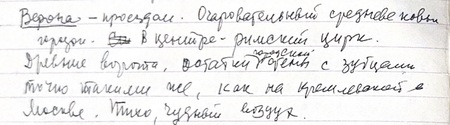 Верона – проездом. Очаровательный средневековый
городок. В центре – римский цирк.
Древние ворота, остатки городской стены с зубцами
точно такими же, как на кремлевской в
Москве. Тихо, чудный воздух.